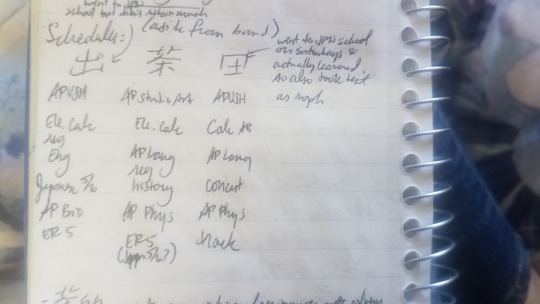 went to JPN
school but didn't
Schedules:) (aside from band)
出 茶 回
went to JPN school
on saturdays &
actually learned
so also took test
as soph
APUSH AP Studio Art APUSH
Ele. Calc Ele. Calc Calc AB
reg
Eng AP Lang AP Lang
reg
Japanese 5/6 history concert
AP Bio AP Phys AP Phys
ER 5 ER 5 track